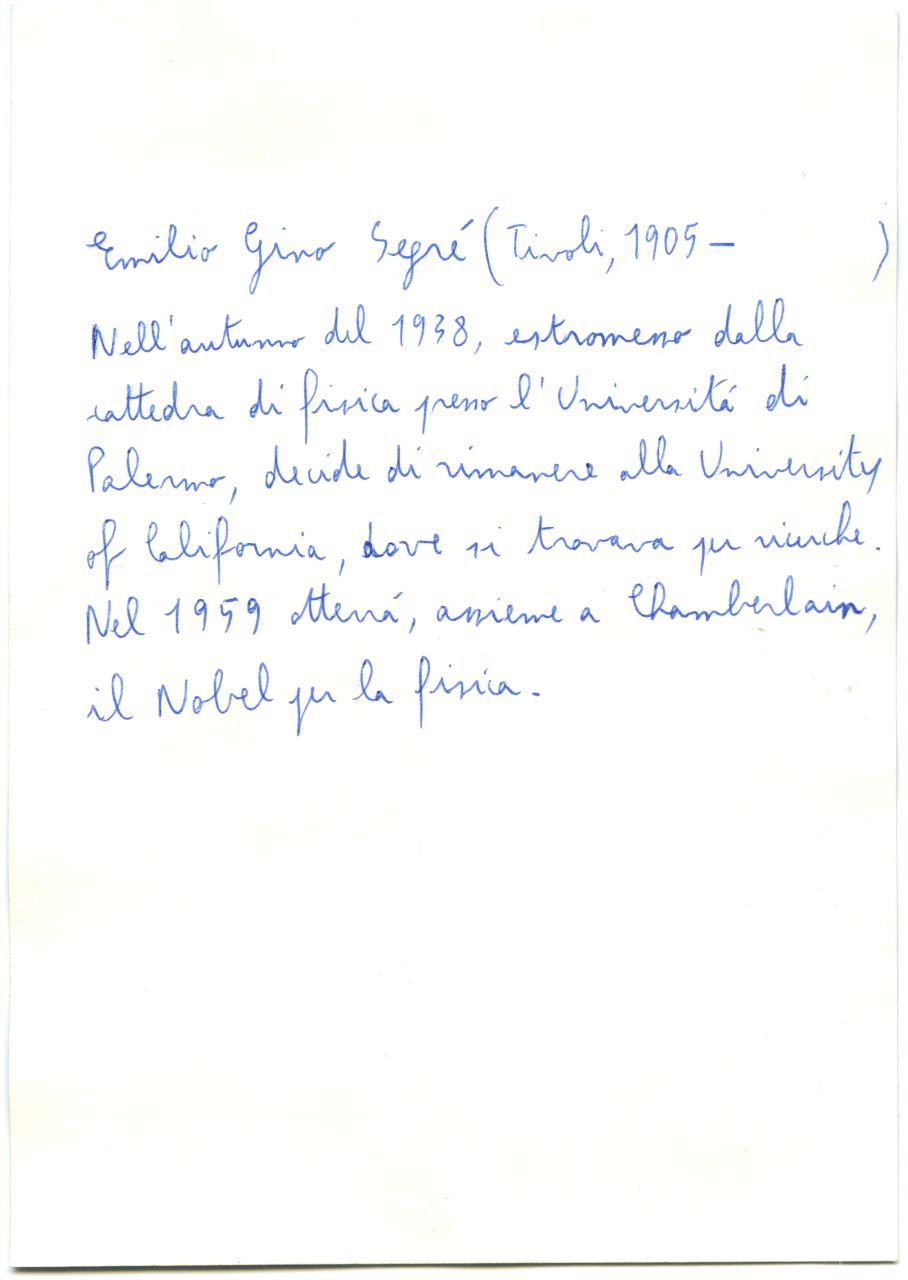 Emilio Gino Segré (Tivoli, 1905 – )
Nell'autunno del 1938, estromesso dalla
cattedra di fisica presso l'Universitá di
Palermo, decide di rimanere alla University
of California, dove si trovava per ricerche.
Nel 1959 otterrá, assieme a Chamberlain,
il Nobel per la fisica.